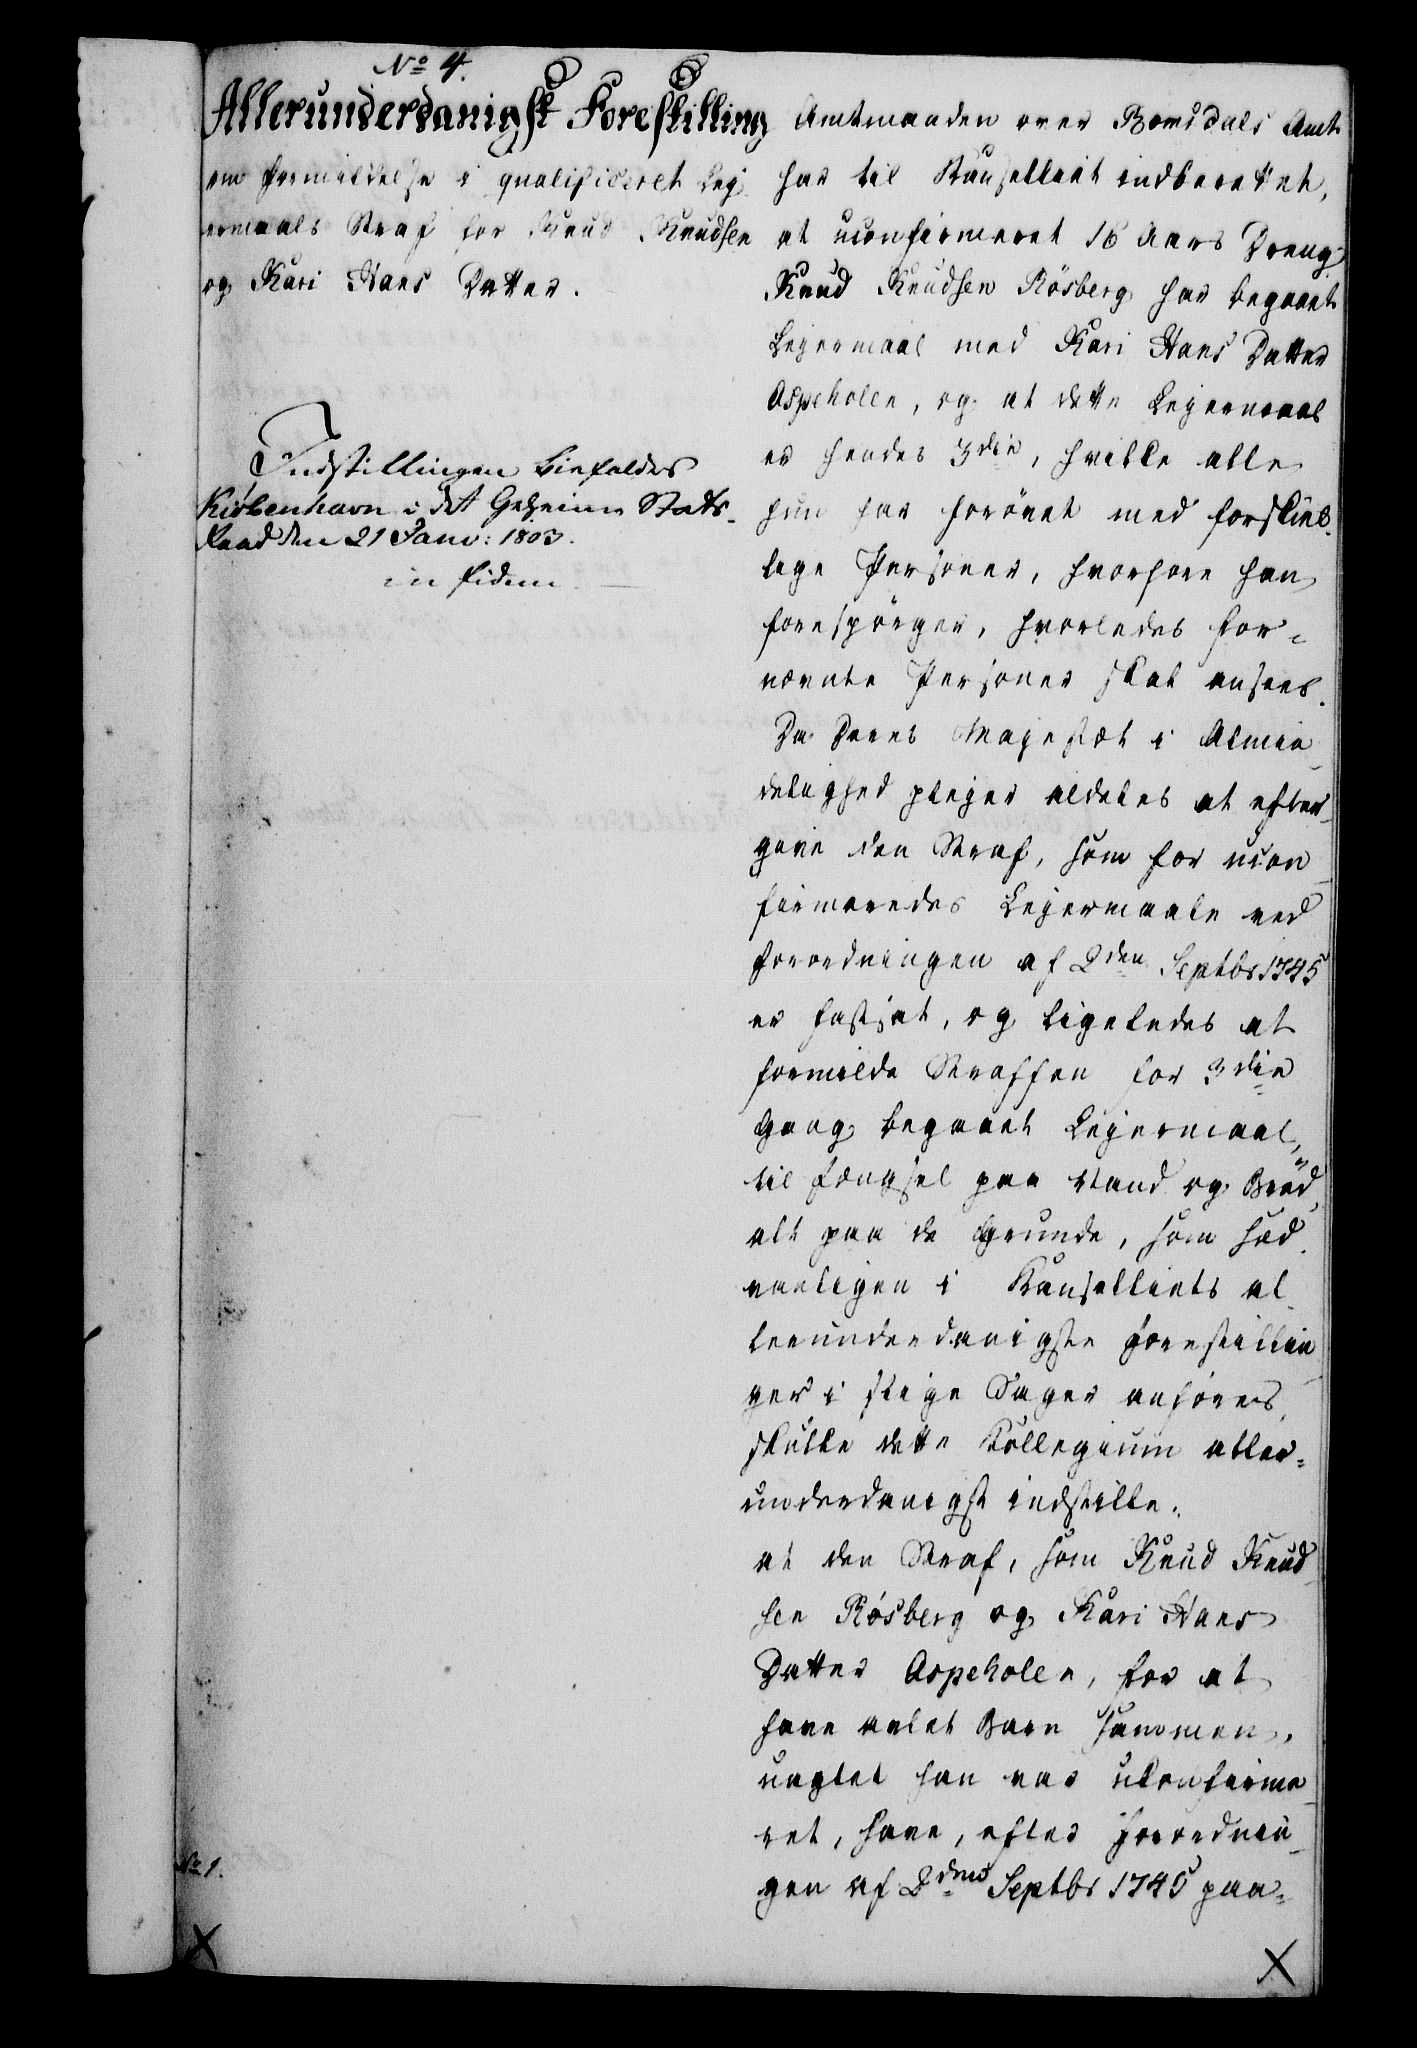 No 4.
Allerunderdanigst Forestilling
om Formildelse i qualificeret Lej-
ermaals Straf for Knud Knudsen
og Kari Hans Datter.
Indstillingen bifaldes
Kiøbenhavn i det Geheime Stats-
Raad den 21 Janv: 1803.
in fidem
No 1.
Amtmanden over Romsdals Amt
har til Kanselliet indberettet,
at uconfirmeret 16 Aars Dreng
Knud Knudsen Rösberg har begaaet
Lejermaal med Kari Hans Datter
Aspeholen, og at dette Lejermaal
er hendes 3die, hvilke alle
hun har forövet med forskiel-
lige Personer, hvorfore han
forespörger, hvorledes for-
nævnte Personer skal ansees.
Da Deres Majestæt i Almin-
delighed plejer aldeles at efter-
give den Straf, som for ucon-
firmeredes Lejermaale ved
Forordningen af 2den Septbr 1745
er fastsat, og ligeledes at
formilde Straffen for 3die
Gang begaaet Lejermaal,
til Fængsel paa Vand og Bröd,
alt paa de Grunde, som sæd-
vanligen i Kanselliets al-
lerunderdanigste Forestillin-
ger i slige Sager anföres,
skulle dette Kollegium aller-
underdanigst indstille:
at den Straf, som Knud Knud-
sen Rösberg og Kari Hans
Datter Aspeholen, for at
have avlet Barn sammen,
uagtet han var ukonfirme-
ret, have, efter Forordnin-
gen af 2den Septbr 1745 paa-
X
X